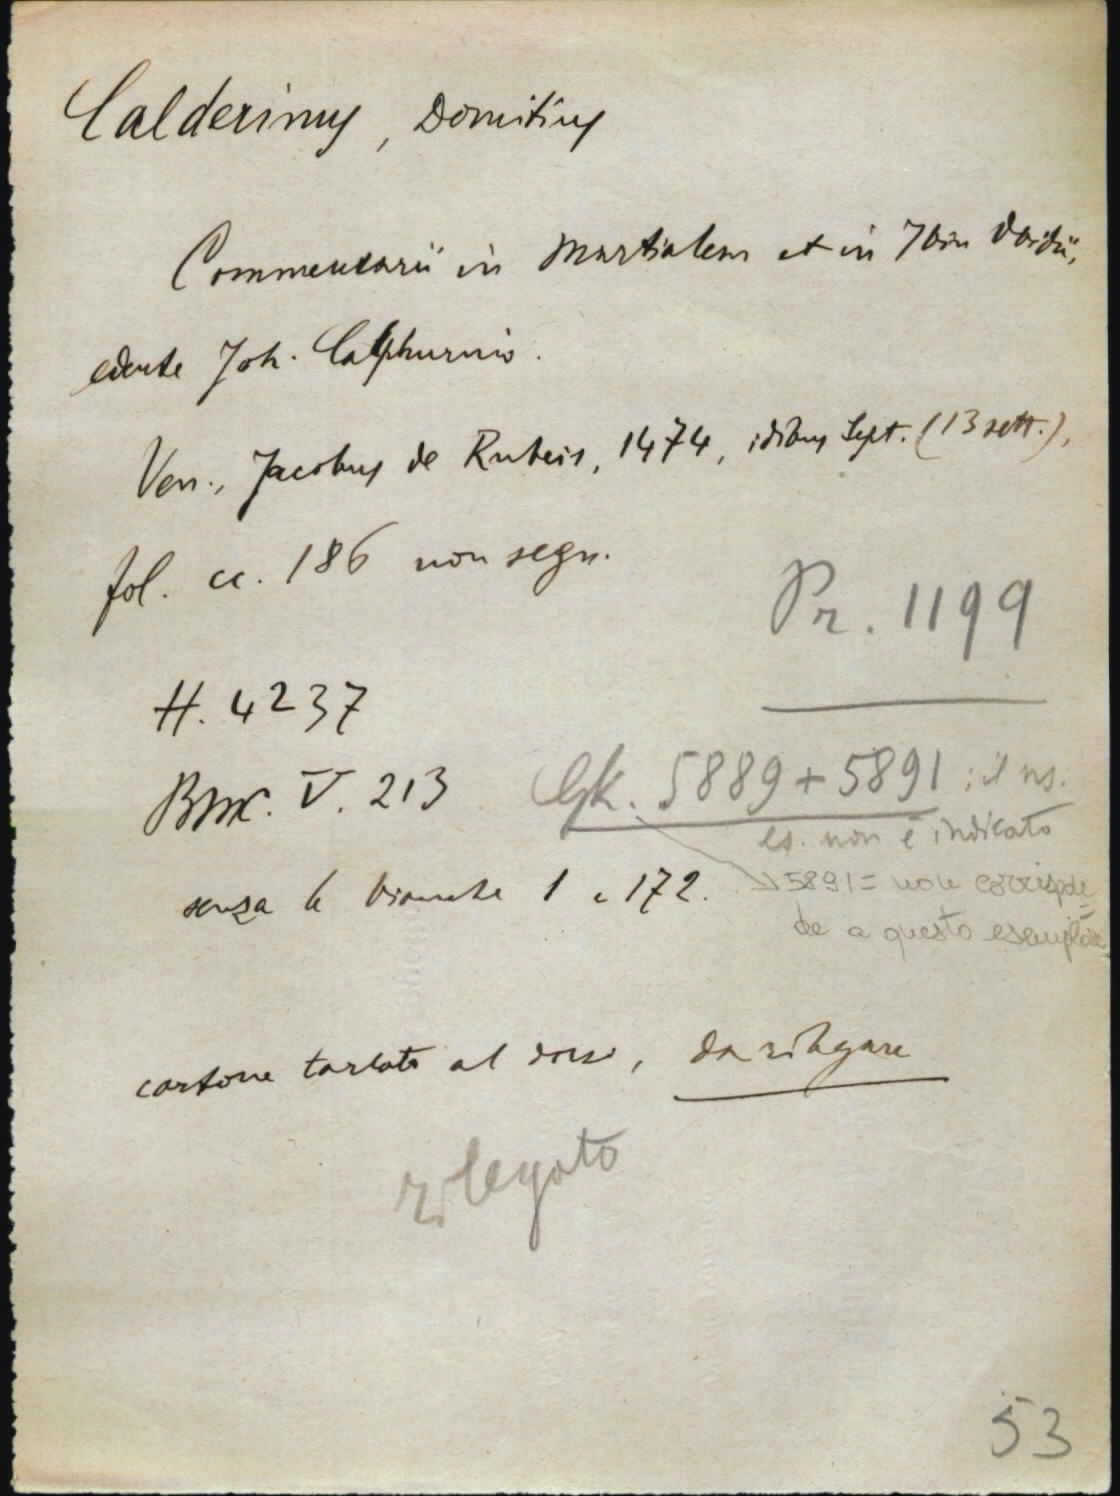 Calderinus, Domitius
Commentarii in Martialem et in Ibin Ovidii,
edente Joh. Calphurnio.
Ven., Jacobus de Rubeis, 1474, idibus Sept. (13 sett.),
fol. cc. 186 non segn.
Pr. 1199
H. 4237
BMC. V. 213
Gk. 5889+5891; il ns.
es. non è indicato
senza le bianche 1 e 172.
5891= non corrispon=
de a questo esemplare
cartone tarlato al dorso, da rilegare
rilegato
53